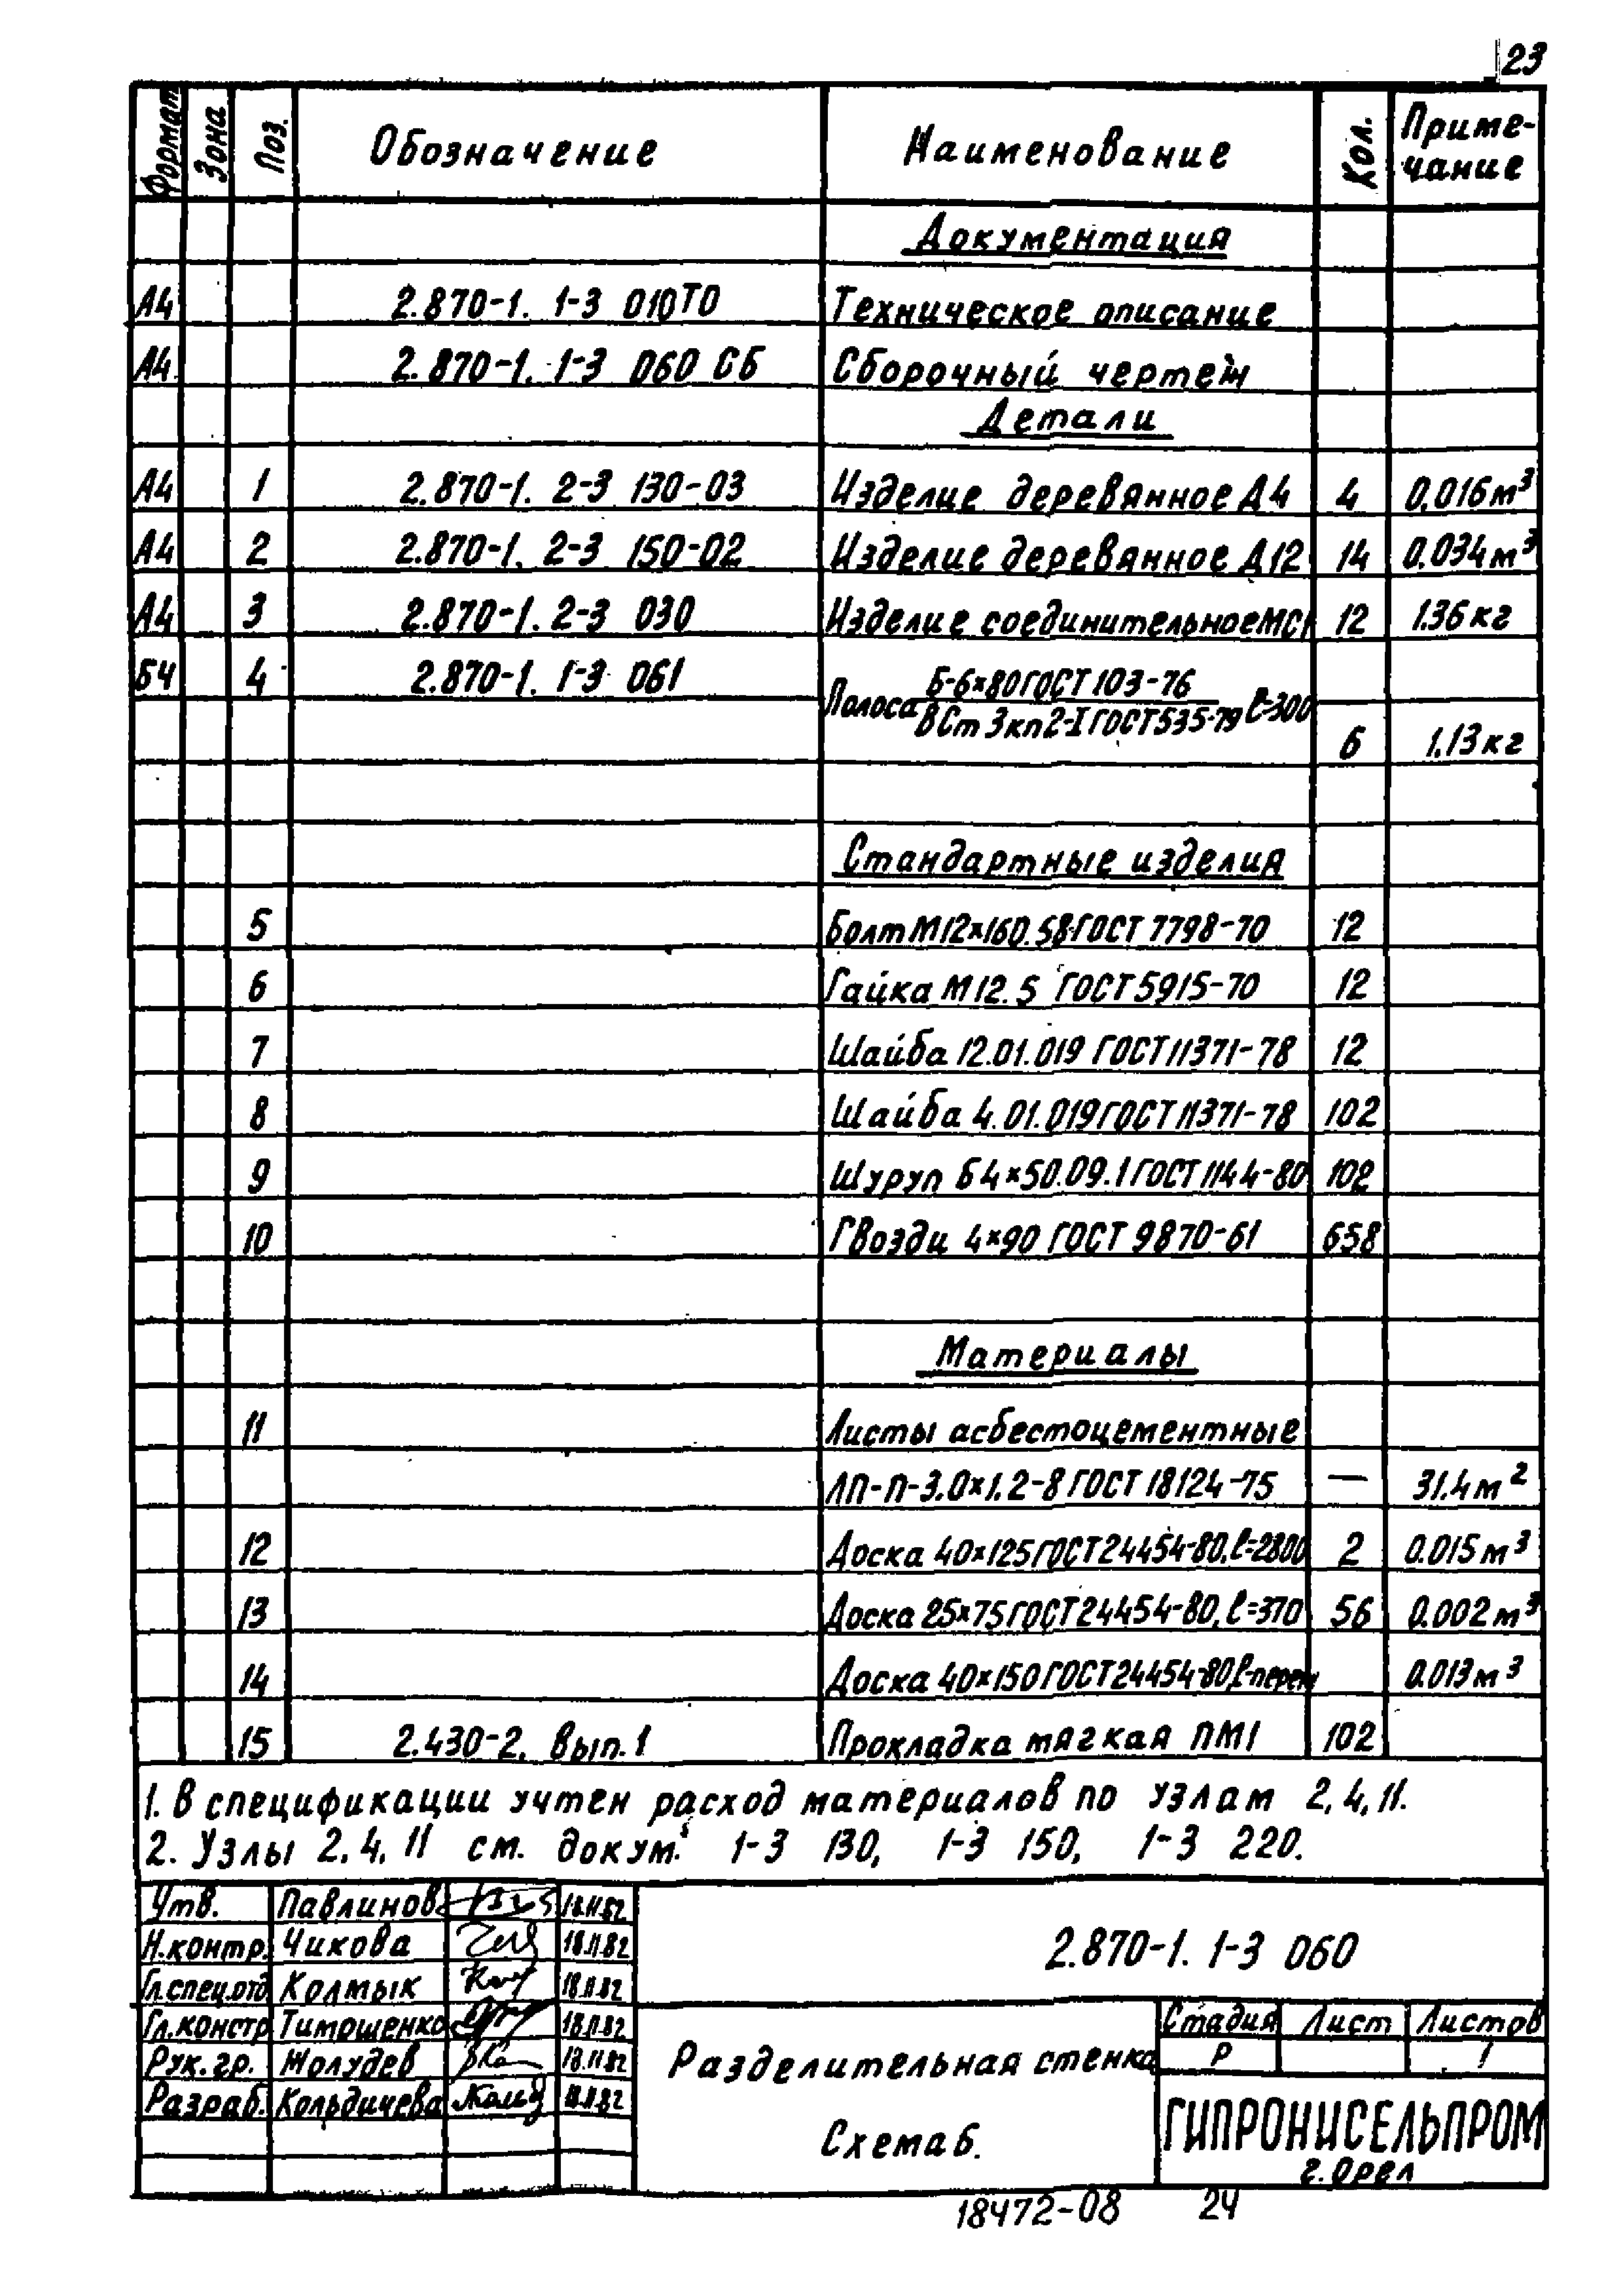 23
Формат Зона Поз. Обозначение Наименование Кол. Приме-
чание
Документация
А4 2.870-1. 1-3 010ТО Техническое описание
А4 2.870-1. 1-3 060 СБ Сборочный чертеж
Детали
А4 1 2.870-1. 2-3 130-03 Изделие деревянное Д4 4 0,016м³
А4 2 2.870-1. 2-3 150-02 Изделие деревянное Д12 14 0.034м³
А4 3 2.870-1. 2-3 030 Изделие соединительное МС1 12 1.36кг
БЧ 4 2.870-1. 1-3 061 Полоса Б-6×80 ГОСТ 103-76
ВСт 3кп2-I ГОСТ 535-79 ℓ=300
6 1,13кг
Стандартные изделия
5 Болт М12×160.58 ГОСТ 7798-70 12
6 Гайка М12.5 ГОСТ 5915-70 12
7 Шайба 12.01.019 ГОСТ 11371-78 12
8 Шайба 4.01.019 ГОСТ 11371-78 102
9 Шуруп Б4×50.09.1 ГОСТ 1144-80 102
10 Гвозди 4×90 ГОСТ 9870-61 658
Материалы
11 Листы асбестоцементные
ЛП-П-3.0×1.2-8 ГОСТ 18124-75 — 31.4м²
12 Доска 40×125 ГОСТ 24454-80, ℓ=2800 2 0.015м³
13 Доска 25×75 ГОСТ 24454-80, ℓ=370 56 0.002м³
14 Доска 40×150 ГОСТ 24454-80, ℓ-перем 0.013м³
15 2.430-2. Вып.1 Прокладка мягкая ПМ1 102
1. В спецификации учтен расход материалов по узлам 2,4,11.
2. Узлы 2,4,11 см. докум. 1-3 130, 1-3 150, 1-3 220.
Утв. Павлинов 18.11.82
Н.контр. Чикова 18.11.82
Гл.спец.отд Колмык 18.11.82
Гл.констр Тимошенко 18.11.82
Рук.гр. Жолудев 18.11.82
Разраб. Кольдичева 18.11.82
2.870-1. 1-3 060
Разделительная стенка
Схема 6.
Стадия Лист Листов
Р 1
ГИПРОНИСЕЛЬПРОМ
г. Орел
18472-08 24